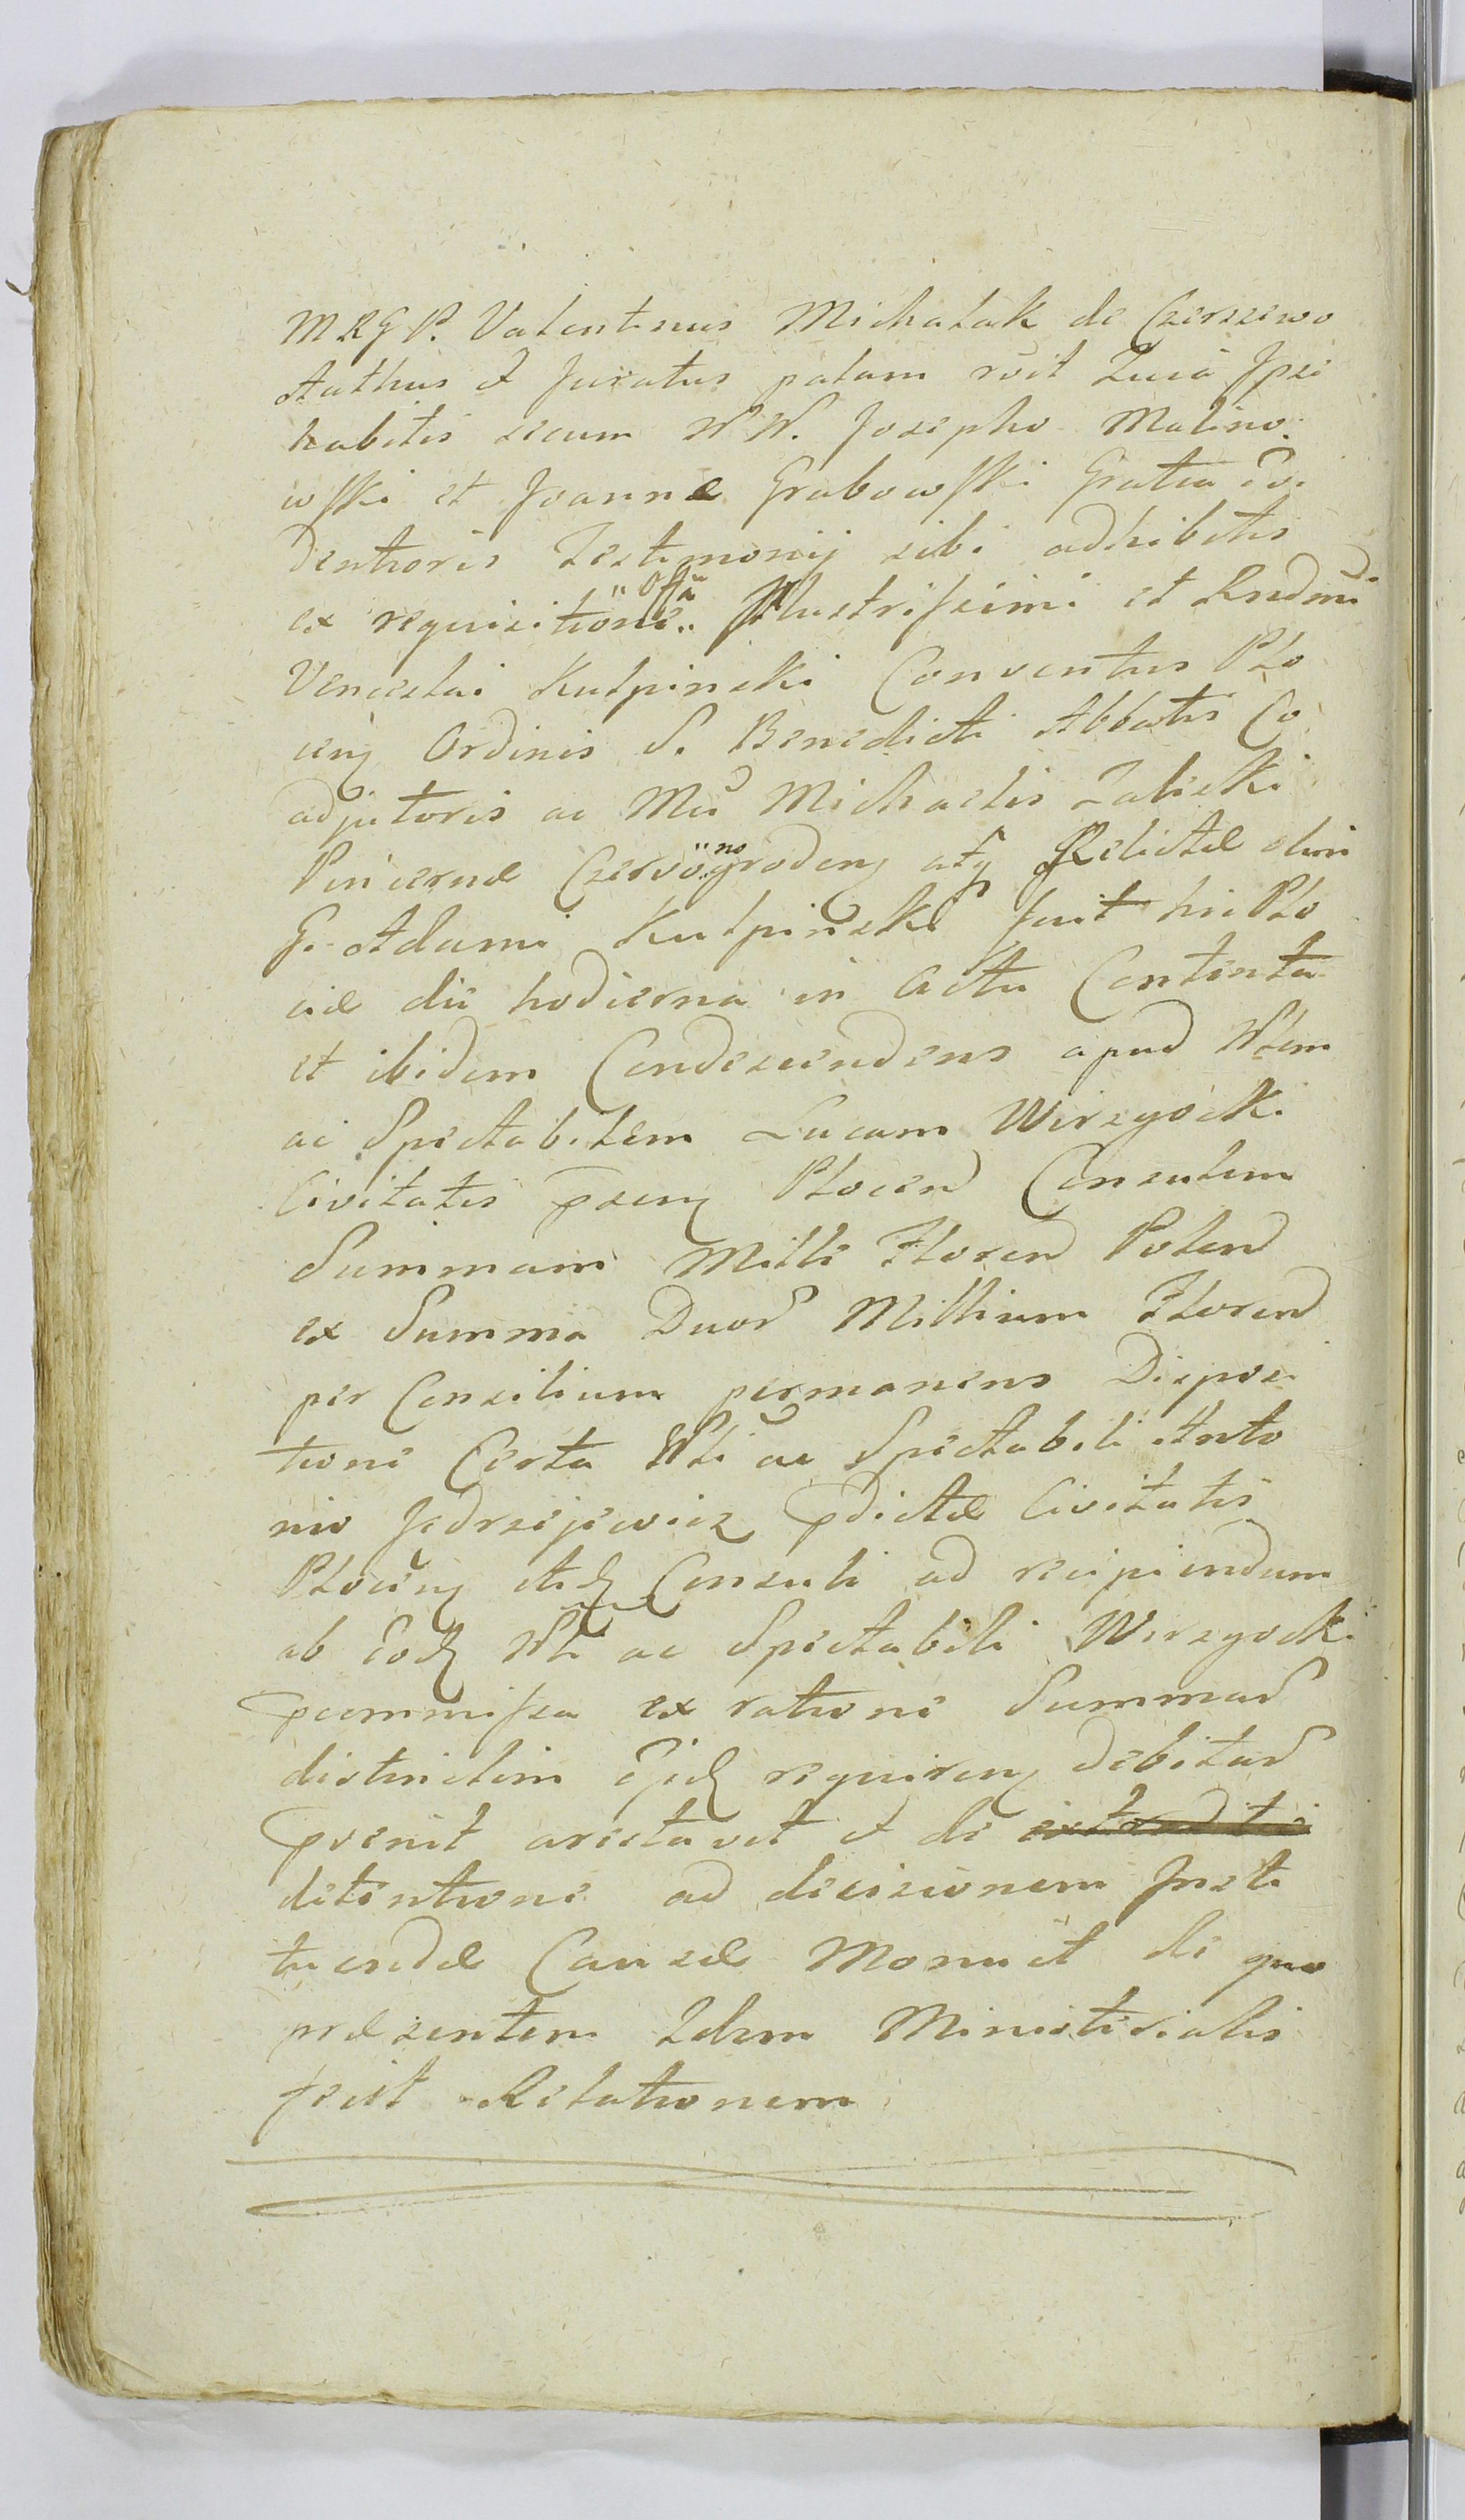 MRGP. Valentinus Michalak de Czerszewo
Aathus et Juratus palam roit Quia Ipse
habitis secum NN. Josepho Malino:
wski et Joanne Grabowski Gratia Evi
dentioris Testimonij sibi adhibitis
ex requisitione "Offa" Illustrissimi et Rndmi
Venceslai Kulpinski Conventus Plo
cen Ordinis S. Benedicti Abbatis Co
adjutoris ac Mci Michaelis Zaliski
Pincernæ Czerwo"no"groden atq Relictæ olim
G. Adami Kulpinski fuit hic Plo
ciæ die hodierna in Actu Contenta
et ibidem Condescendens apud Nlem
ac Spectabilem Lucam Wirzgocki
Civitatis psen Plocen Consulem
Summam Mille Floren Polon
ex Summa Duor Millium Floren
per Consilium permanens Disposi
tione Certa Nli ac Spectabili Anto
nio Jedrzejewicz pdictæ Civitatis
Plocen itid Consuli ad recipiendum
ab Eod Nli ac Spectabili Wirzgocki
pcommissa ex ratione Summar
distinctim Ejsd requiren debitar
pvenit arestavit et de
detentione ad decisionem Insti
tuendæ Causæ Monuit de quo
præsentem Idem Ministerialis
fecit Relationem